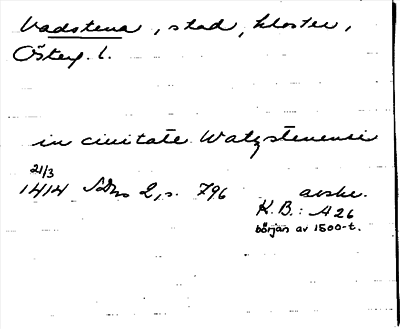 Vadstena, stad, kloster,
Österg. l.
in civitate Watzstenensi
21/3
1414 SDns 2, s. 796 avskr.
K. B.: A 26
början av 1500-t.